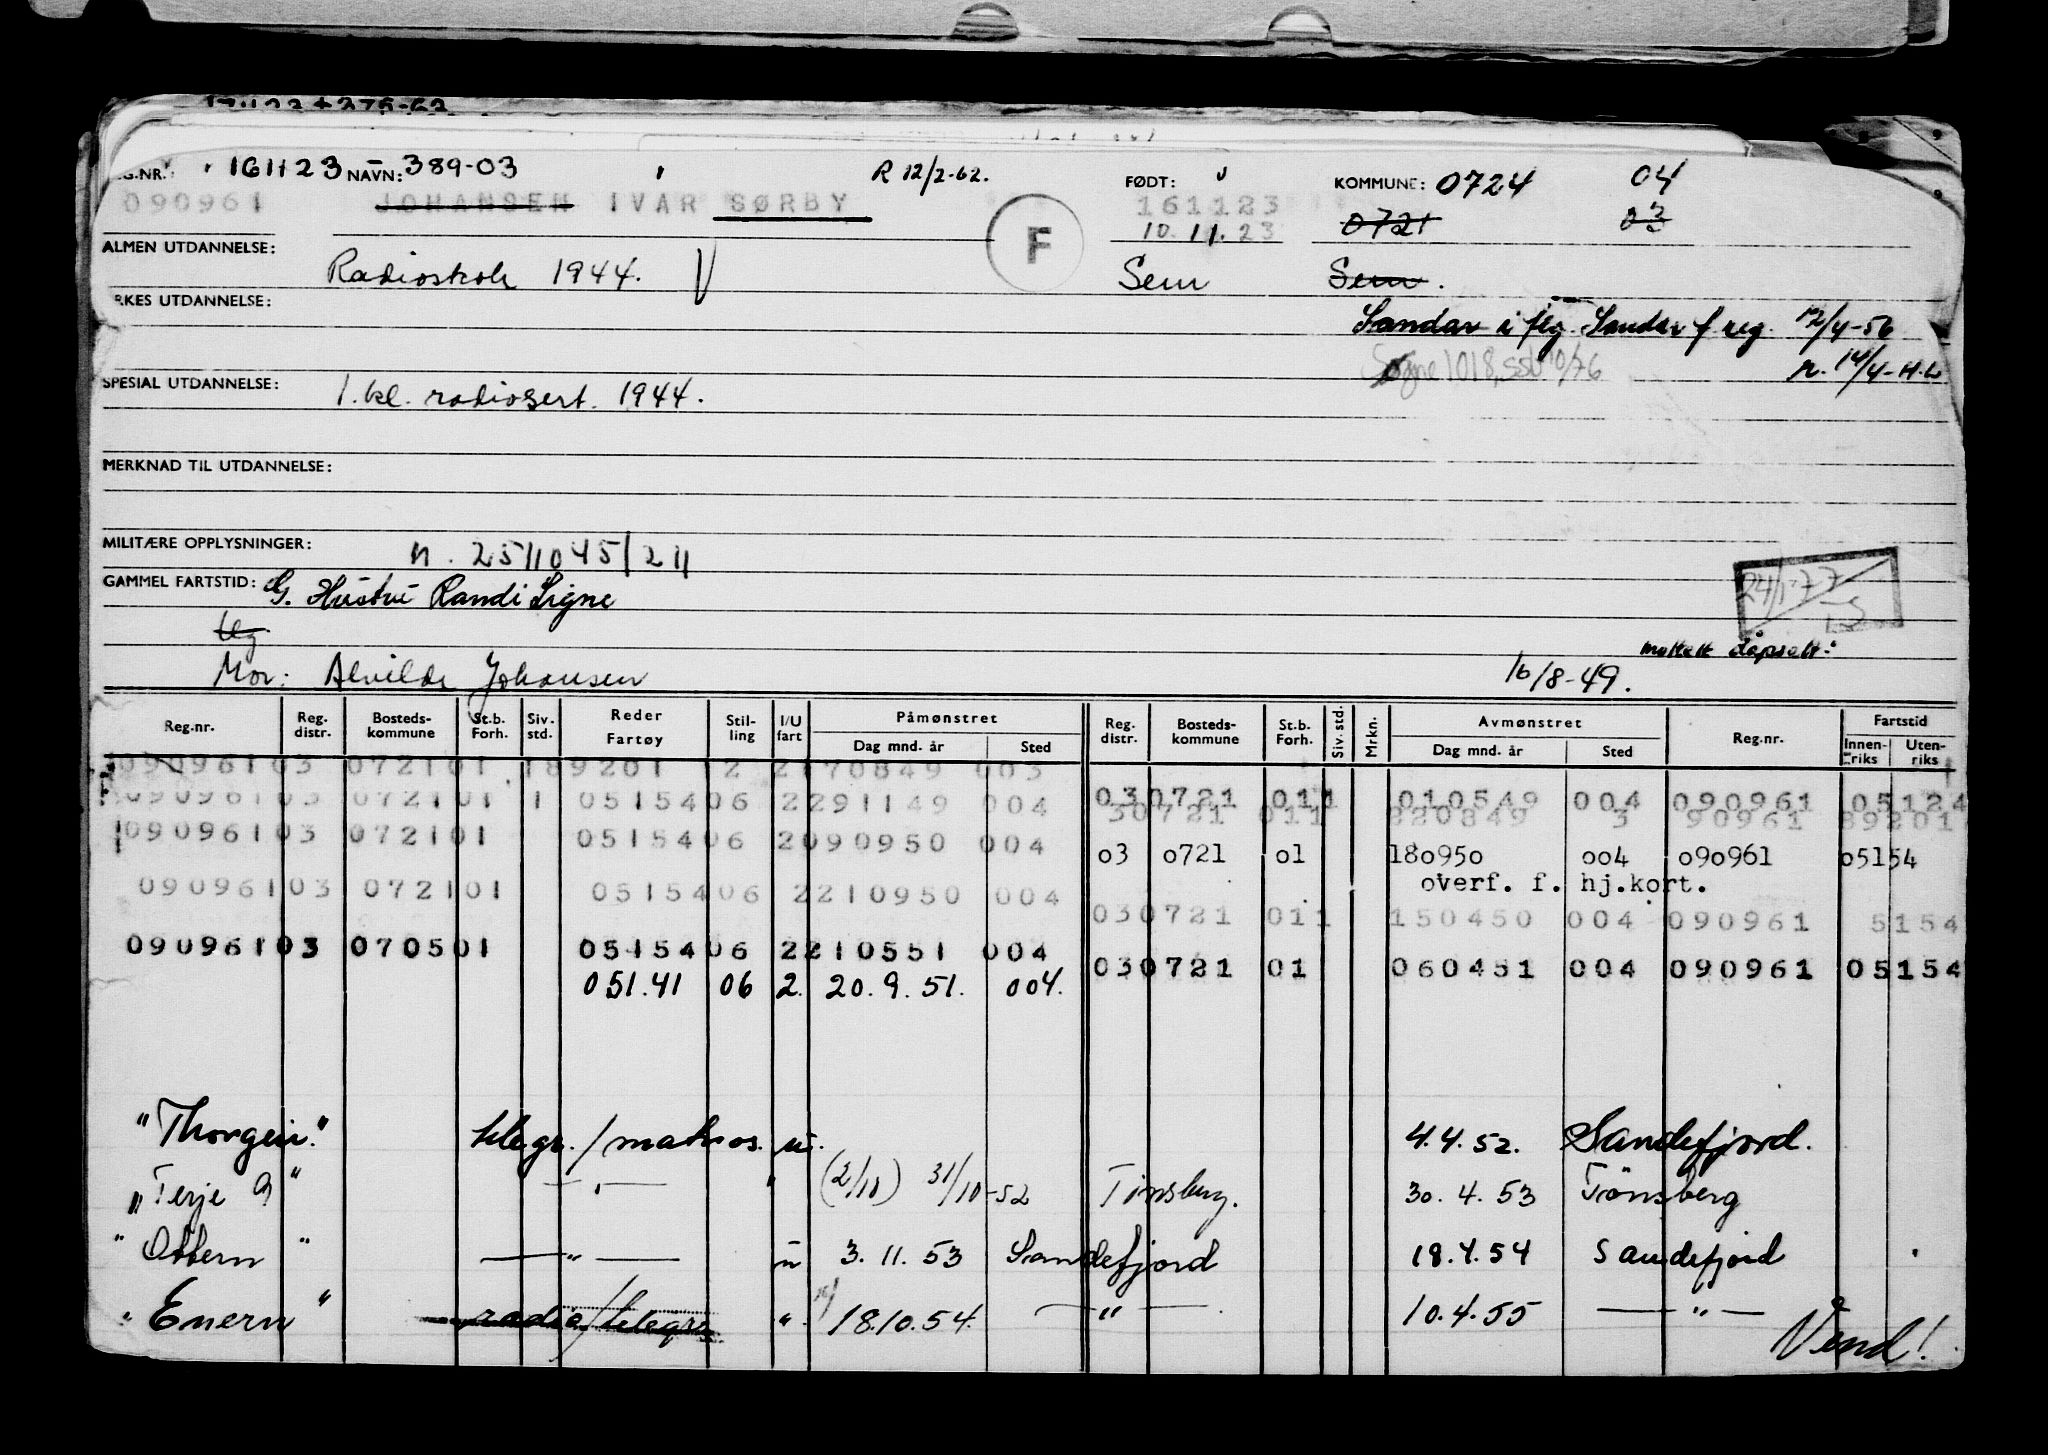 161123 NAVN: 389-03 R 12/2-62. FØDT: KOMMUNE: 0724 04
090961 JOHANSEN IVAR SØRBY F 161123 0721 03
10.11.23
ALMEN UTDANNELSE: Radioskole 1944. Sem Sem.
RKES UTDANNELSE:
Sandar i flg. Sandar f.reg. 12/4-56
Søgne 1018, SSB 10/76 r. 14/4-H.L
SPESIAL UTDANNELSE: 1.kl. radiosert. 1944.
MERKNAD TIL UTDANNELSE:
MILITÆRE OPPLYSNINGER: n. 2511045/211
GAMMEL FARTSTID: G. Hustru Randi Signe
24/1-77
Ug
mottatt dåpsatt:
Mor: Alvilde Johansen 16/8-49.
Reg.nr. Reg. distr. Bosteds-kommune St.b. Forh. Siv. std. Reder Fartøy Stil-ling I/U fart Påmønstret Dag mnd. år Sted Reg. distr. Bosteds-kommune St.b. Forh. Siv. std. Mrkn. Avmønstret Dag mnd. år Sted Reg.nr. Fartstid Innen-riks Uten-riks
09096103 072101 189201 2 2170849 003
09096103 072101 1 0515406 2291149 004 030721 011 010549 004 090961 05124
30721 011 220849 3 90961 89201
09096103 072101 0515406 2090950 004 03 0721 01 180950 004 090961 05154
overf. f. hj.kort.
09096103 072101 0515406 2210950 004 030721 011 150450 004 090961 5154
09096103 070501 0515406 2210551 004 030721 01 060451 004 090961 05154
051.41 06 2. 20.9.51. 004.
"Thorgeir." telegr./matros. u. 4.4.52. Sandefjord.
"Terje 9" — " — " (2/10) 31/10-52 Tønsberg. 30.4.53 Tønsberg
"Ottern" — " — u 3.11.53 Sandefjord 18.4.54 Sandefjord
"Enern" radio/telegr. " 18.10.54 — " — 10.4.55 — " —
Vend!